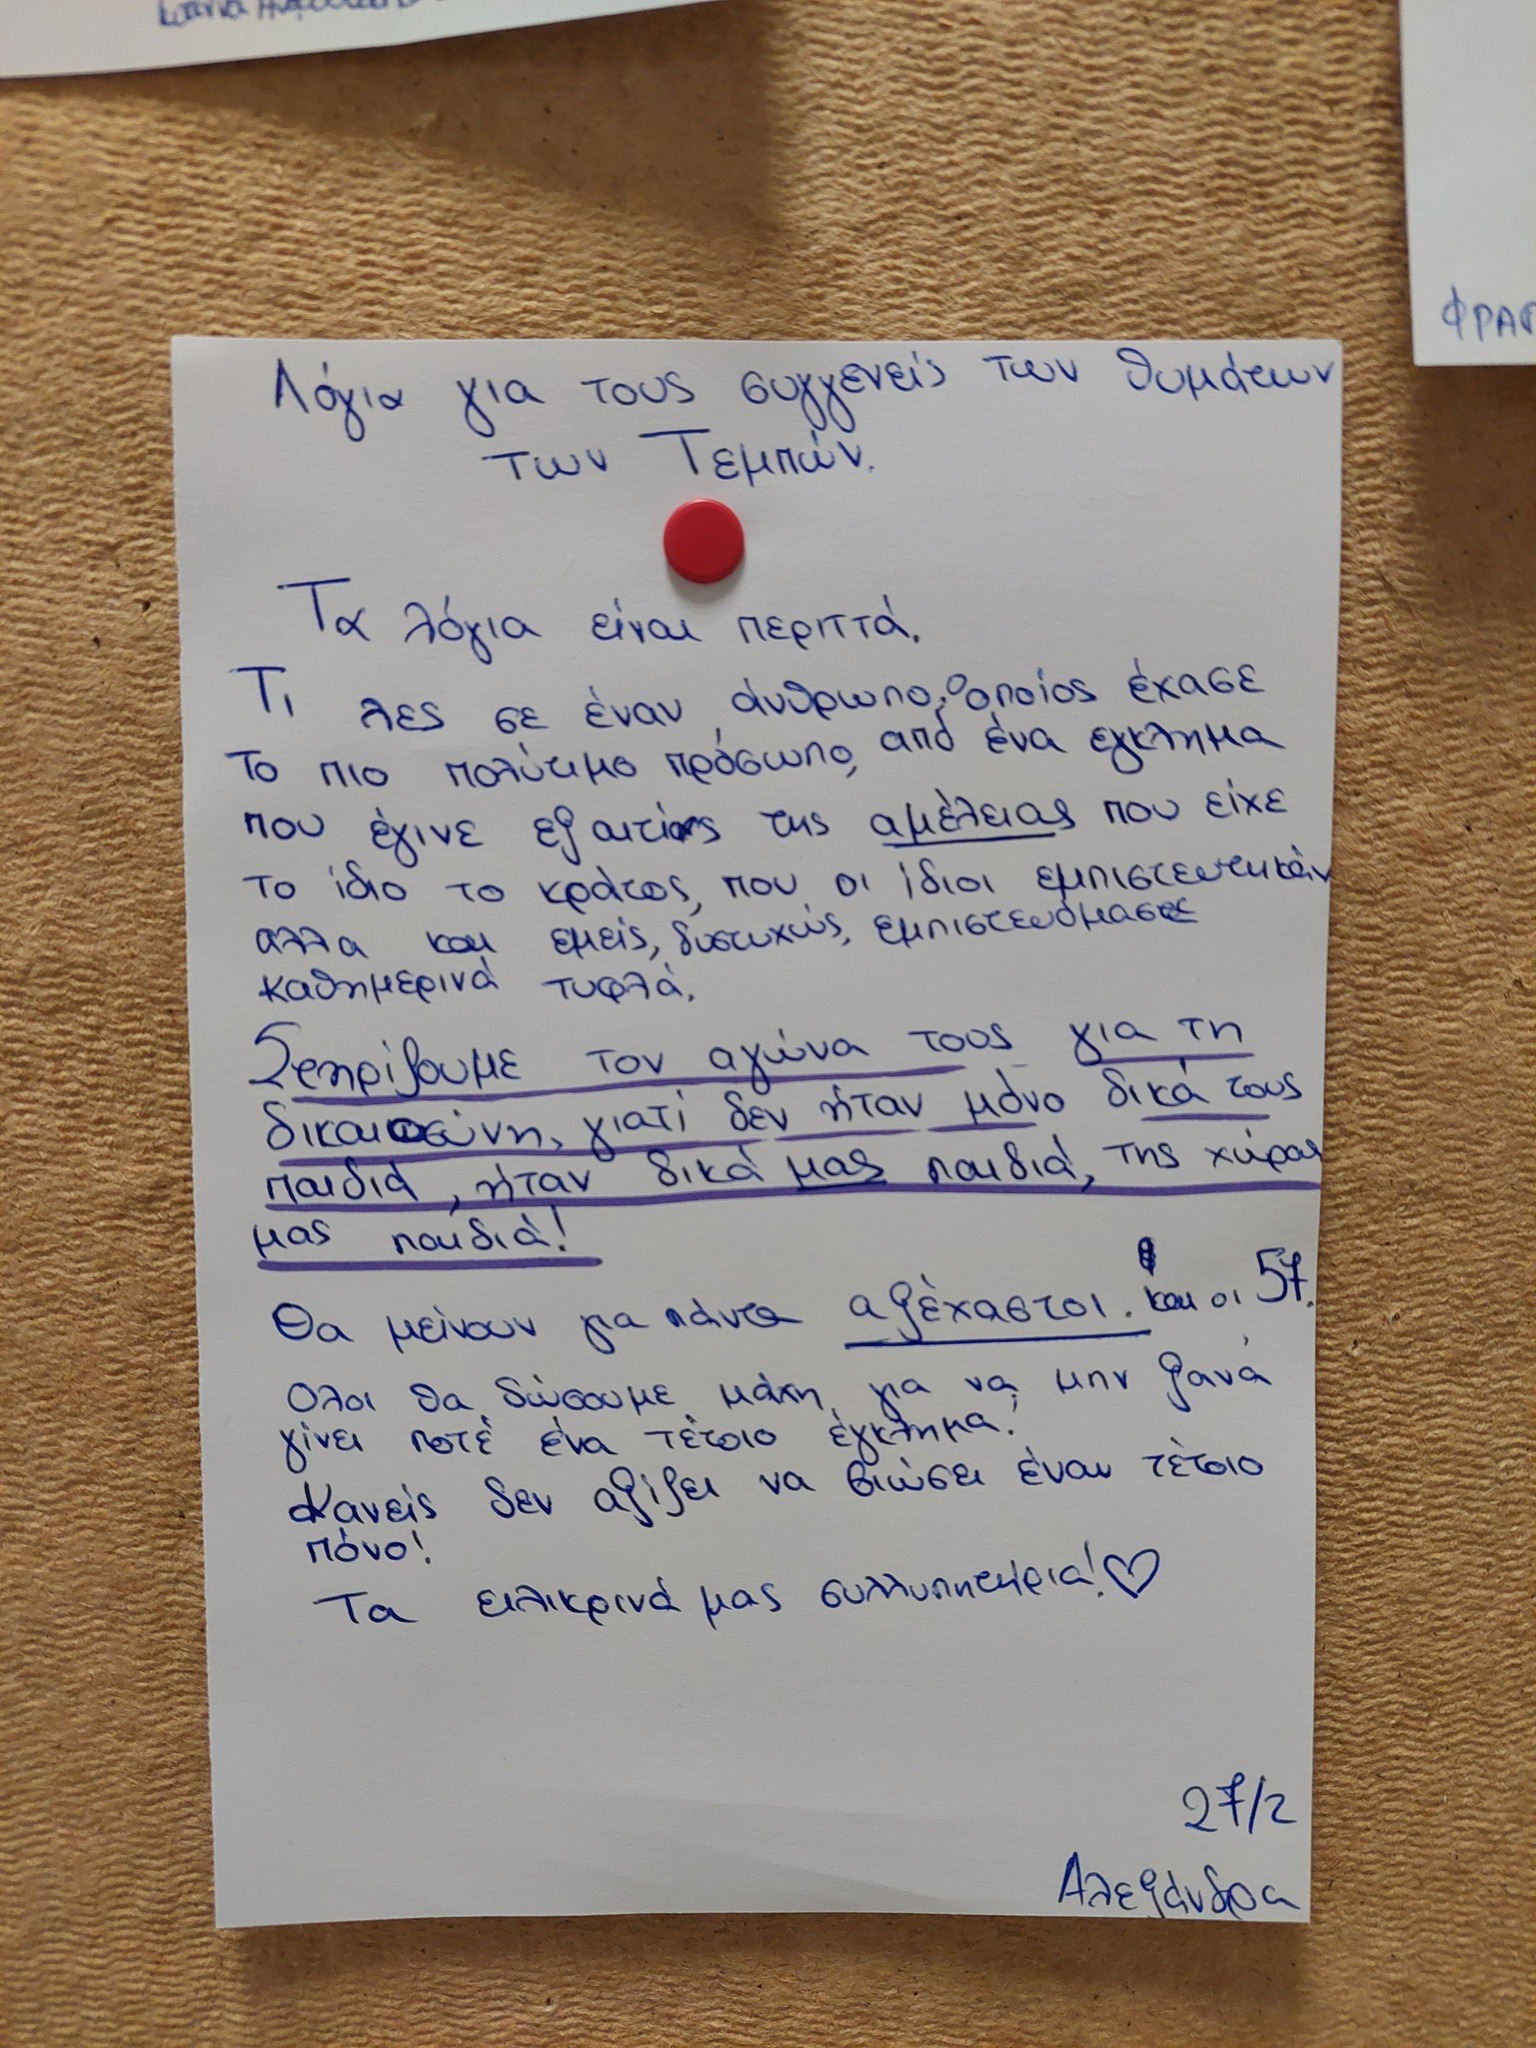 ΦΡΑΓ
Λόγια για τους συγγενείς των θυμάτων
των Τεμπών.
Τα λόγια είναι περιττά.
Τι λες σε έναν άνθρωπο, ο οποίος έχασε
το πιο πολύτιμο πρόσωπο, από ένα εγκλημα
που έγινε εξαιτίας της αμέλειας που είχε
το ίδιο το κράτος, που οι ίδιοι εμπιστευτηκάν
αλλα και εμείς, δυστυχώς, εμπιστευόμαστε
καθημερινά τυφλά.
Στηρίζουμε τον αγώνα τους για τη
δικαιοσύνη, γιατί δεν ήταν μόνο δικά τους
παιδιά, ήταν δικά μας παιδιά, της χώρας
μας παιδιά!
Θα μείνουν για πάντα αξέχαστοι. και οι 57.
Ολοι θα δώσουμε μάχη για να μην ξανά
γίνει ποτέ ένα τέτοιο έγκλημα!
Κανείς δεν αξίζει να βιώσει έναν τέτοιο
πόνο!
Τα ειλικρινά μας συλλυπητήρια! ♡
27/2
Αλεξάνδρα